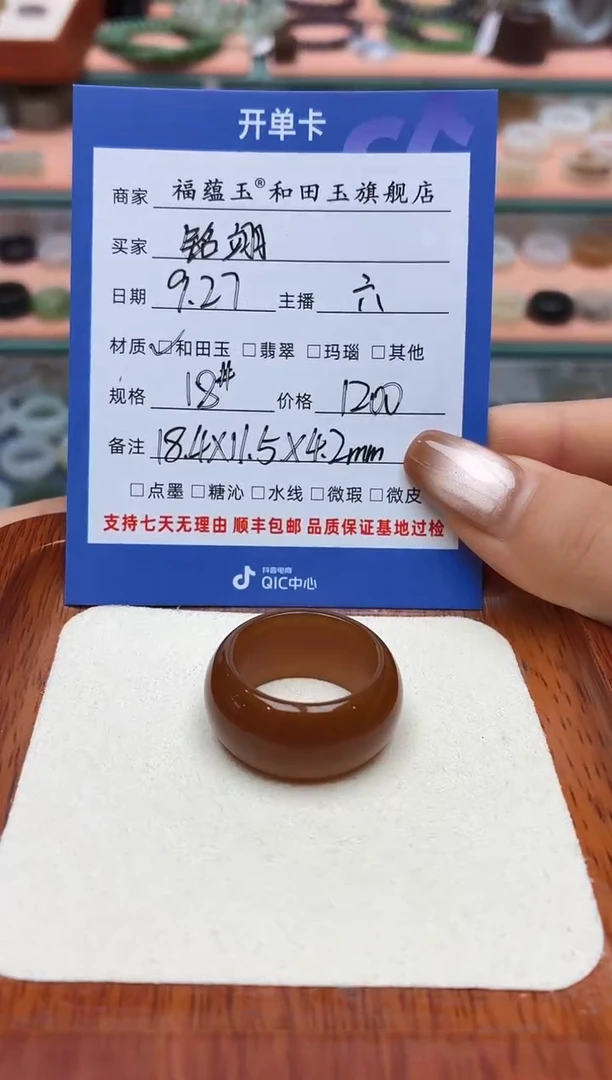 开单卡
商家 福蕴玉®和田玉旗舰店
买家 铭翊
日期 9.27 主播 六
材质 ☑和田玉 □翡翠 □玛瑙 □其他
规格 18# 价格 1200
备注 18.4X11.5X4.2mm
□点墨 □糖沁 □水线 □微瑕 □微皮
支持七天无理由 顺丰包邮 品质保证基地过检
抖音电商
QIC中心